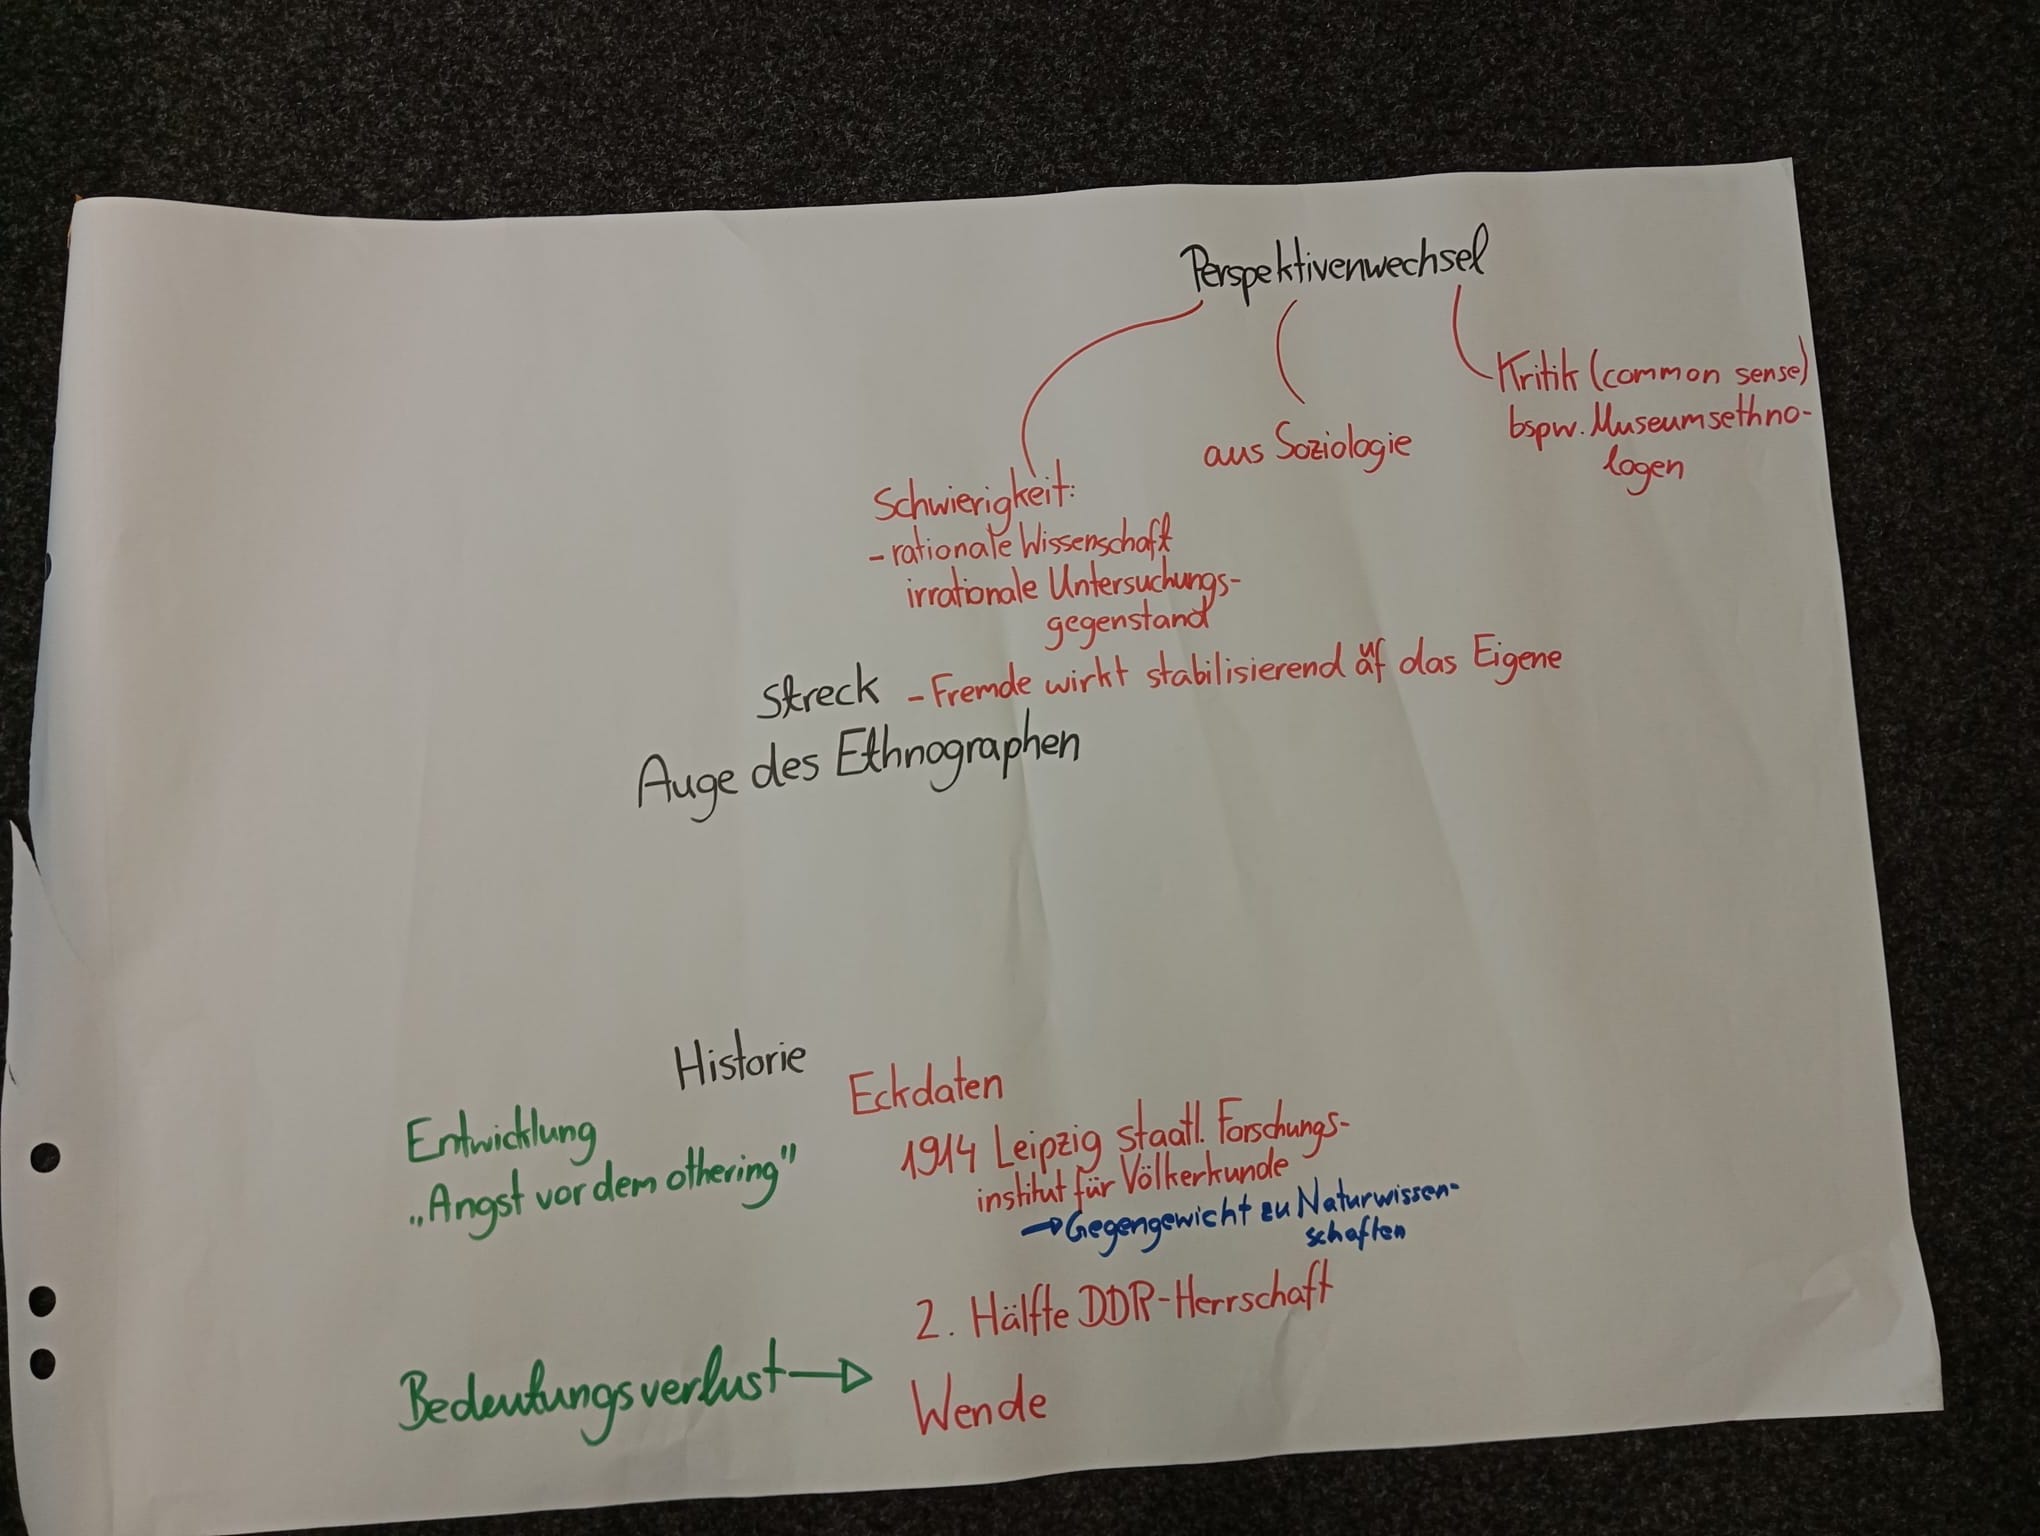 Perspektivenwechsel
Kritik (common sense)
bspw. Museumsethno-
logen
aus Soziologie
Schwierigkeit:
- rationale Wissenschaft
irrationale Untersuchungs-
gegenstand
Streck - Fremde wirkt stabilisierend auf das Eigene
Auge des Ethnographen
Historie
Eckdaten
1914 Leipzig staatl. Forschungs-
institut für Völkerkunde
→ Gegengewicht zu Naturwissen-
schaften
2. Hälfte DDR-Herrschaft
Wende
Entwicklung
„Angst vor dem othering"
Bedeutungsverlust →